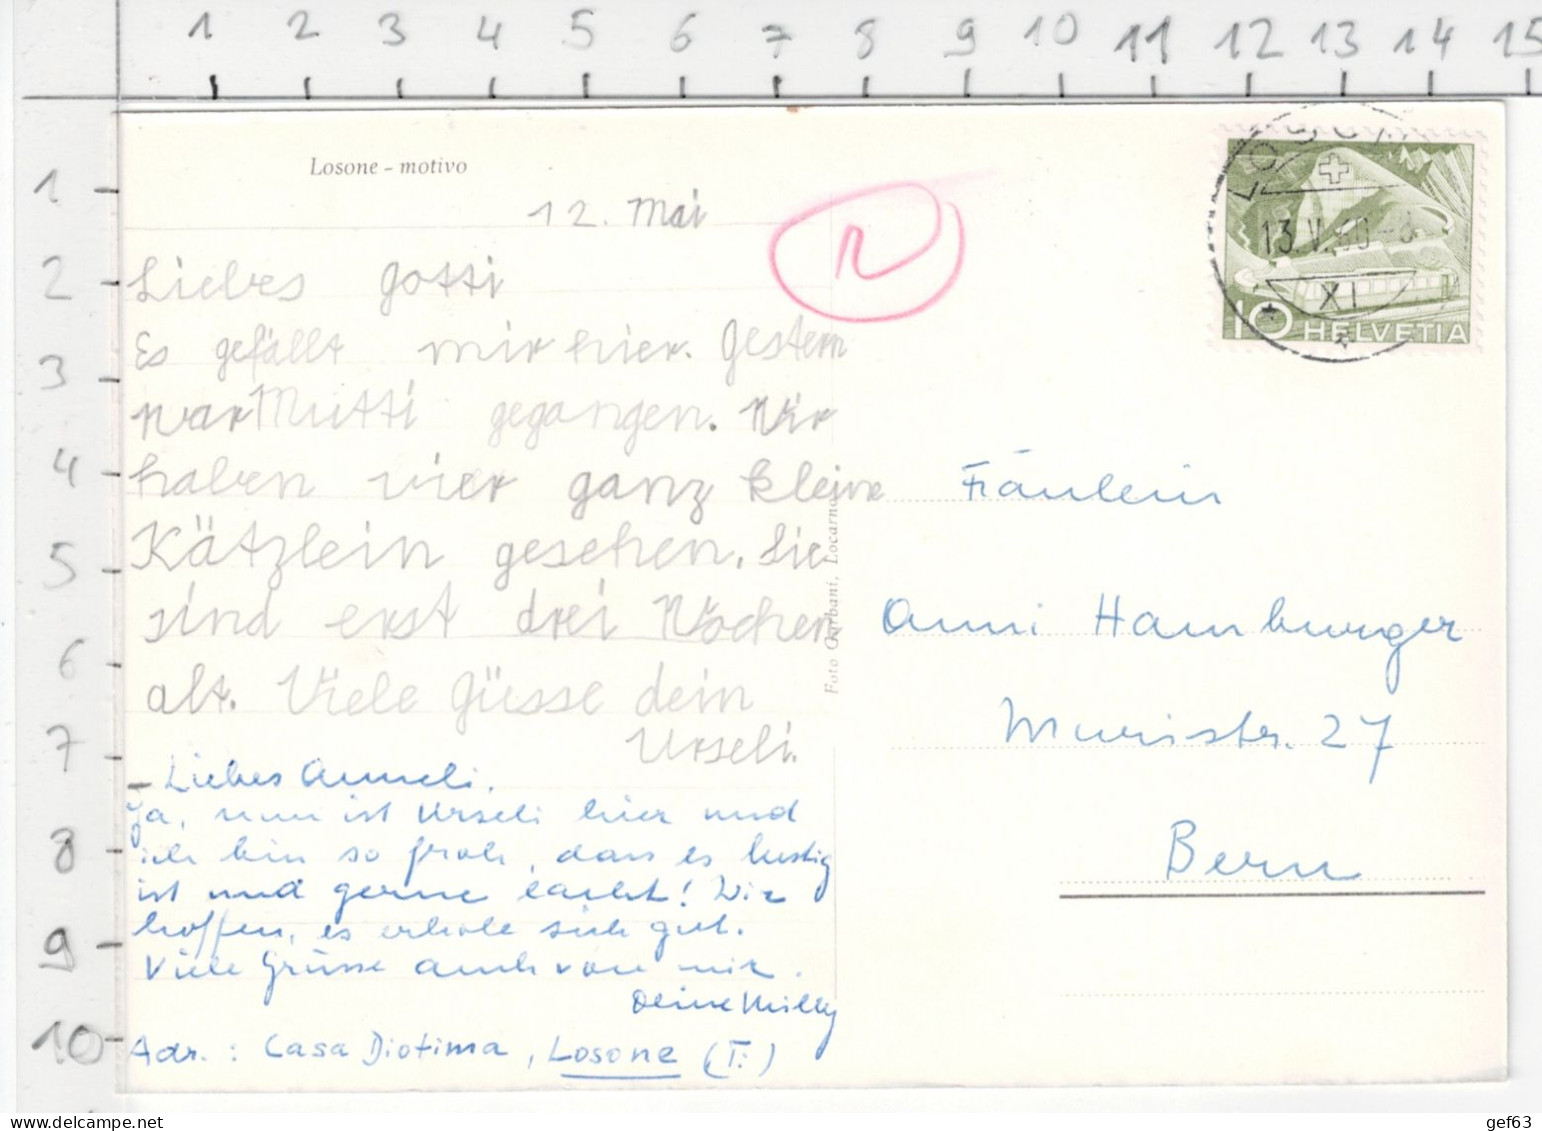 1 2 3 4 5 6 7 8 9 10 11 12 13 14 15
1
2
3
4
5
6
7
8
9
10
Losone – motivo
12. Mai
Liebes Gotti
Es gefällt mir hier. Gestern
war Mutti gegangen. Wir
haben vier ganz kleine
Kätzlein gesehen. Sie
sind erst drei Wochen
alt. Viele Güsse dein
Urseli.
– Liebes Anneli,
Ja, nun ist Urseli hier und
ich bin so froh, dass es lustig
ist und gerne lacht! Wir
hoffen, es erhole sich gut.
Viele Grüsse auch von mir.
Deine Milly
Adr. : Casa Diotima, Losone (Ti)
Foto Garbani, Locarno
LOSONE
13.V.60-8
XI
10 HELVETIA
Fräulein
Anni Hamburger
Muristr. 27
Bern
gef63
delcampe.net